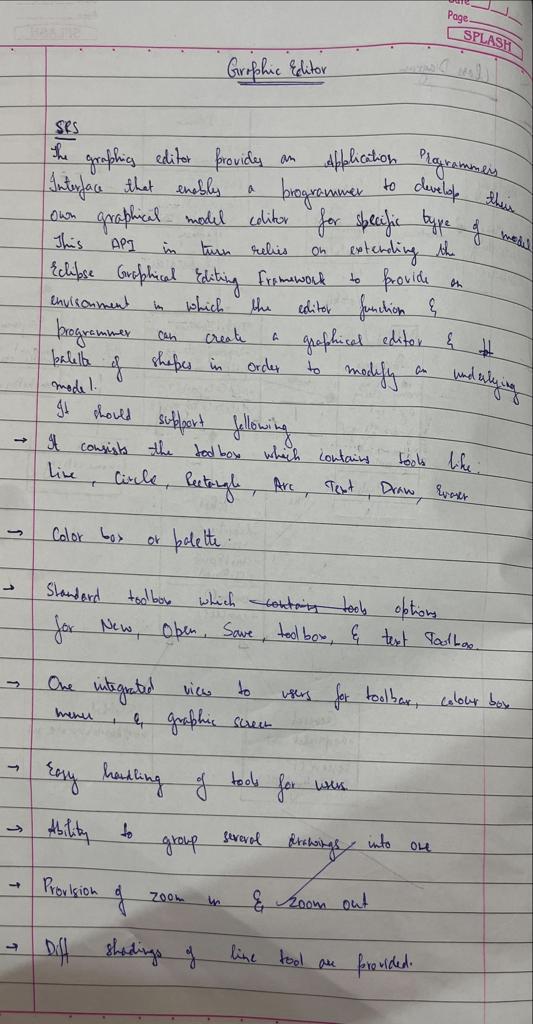 Date
Page
SPLASH
Graphic Editor
SRS
The graphics editor provides an Application Programmers
Interface that enables a programmer to develop their
own graphical model editor for specific type of model
This API in turn relies on extending the
Eclipse Graphical Editing Framework to provide an
environment in which the editor function &
programmer can create a graphical editor &
palette of shapes in order to modify an underlying
model.
It should support following
→ It consists the toolbox which contains tools like:
Line, Circle, Rectangle, Arc, Text, Draw, Eraser
→ Color box or palette.
→ Standard toolbox which contains tools options
for New, Open, Save, toolbox, & text Toolbox.
→ One integrated view to users for toolbar, colour box
menu, & graphic screen
→ Easy handling of tools for users
→ Ability to group several drawings into one
→ Provision of zoom in & zoom out
→ Diff shadings of line tool are provided.